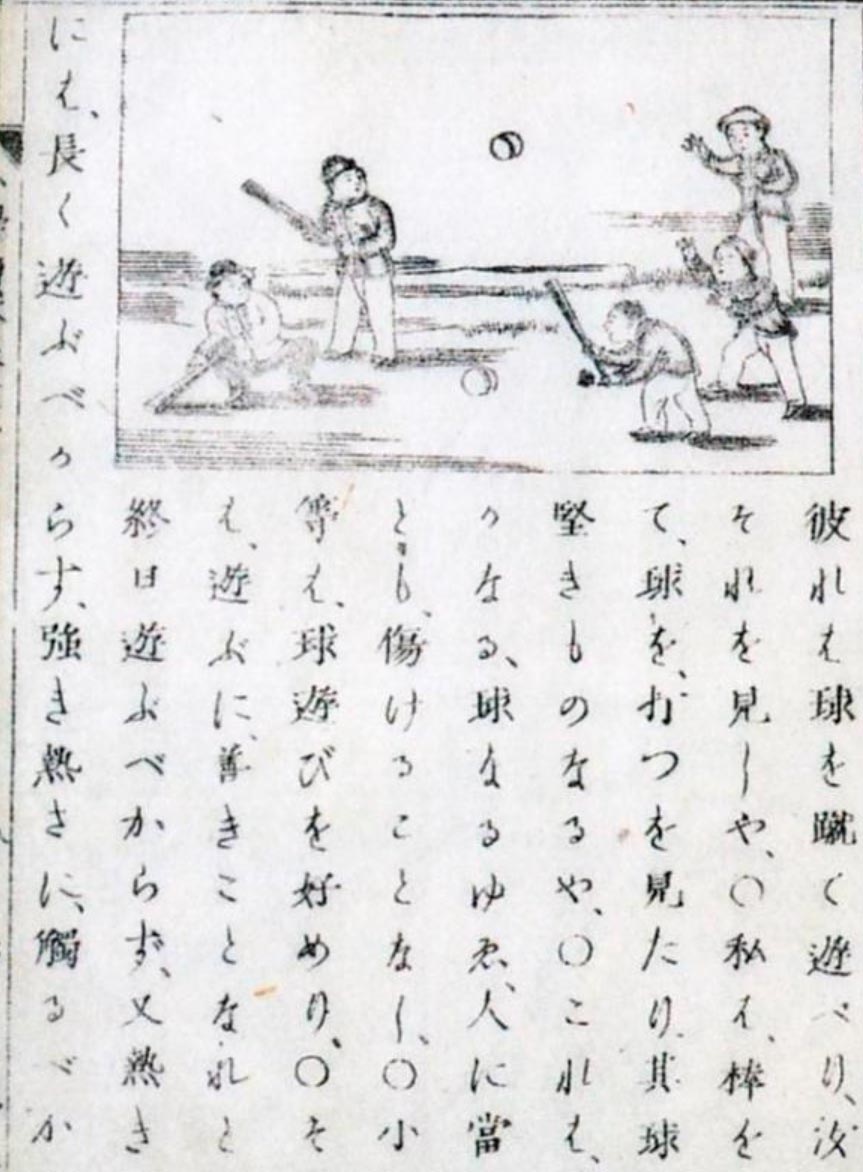 彼れは球を蹴て遊べり、汝
それを見しや、○私は、棒を
て、球を、打つを見たり、其球
堅きものなるや、○これは、
かなる、球なるゆゑ、人に當
とも、傷けることなし、○小
等は、球遊びを好めり、○そ
は、遊ぶに、善きことなれと
終日遊ぶべからず、又熱き
には、長く遊ぶべからす、強き熱さに、觸るべか